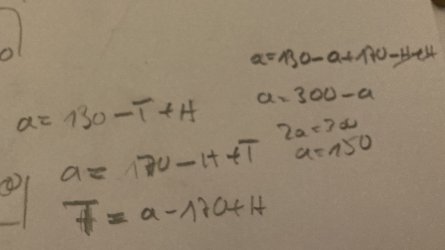 a = 130 - T + H
a = 170 - H + T
T = a - 170 + H
a = 130 - a + 170 - H + H
a = 300 - a
2a = 300
a = 150